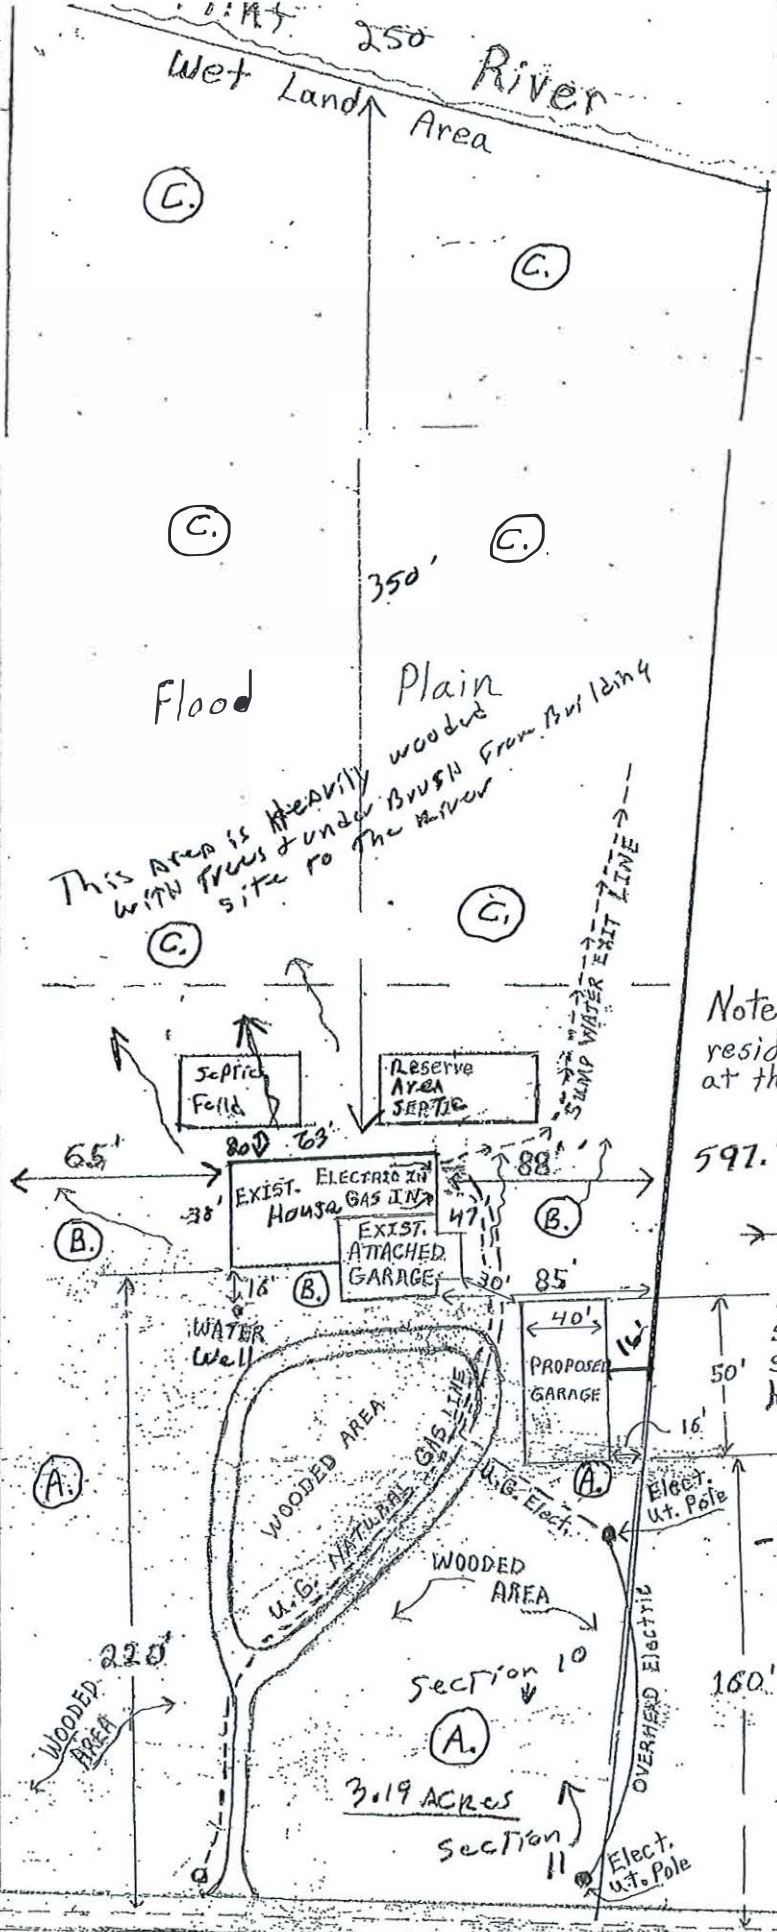 250'
River
Wet Land Area
C.
C.
C.
C.
350'
Flood Plain
This Area is Heavily wooded
with Trees & under Brush From Building
site to The River
C.
C.
SUMP WATER EXIT LINE
Note
resid
at th
Septic
Feild
Reserve
Area
SEPTIC
20' 63'
65'
88'
597.
EXIST.
House
ELECTRIC IN
GAS IN
38'
47'
B.
B.
EXIST.
ATTACHED
GARAGE
B.
16'
30'
85'
WATER
Well
40'
16'
PROPOSED
GARAGE
50'
16'
WOODED AREA
U.G. NATURAL GAS LINE
A.
A.
U.G. Elect.
Elect.
Ut. Pole
WOODED
AREA
220'
section 10
160'
WOODED
AREA
A.
OVERHEAD Electric
3.19 ACRES
section
11
Elect.
ut. Pole